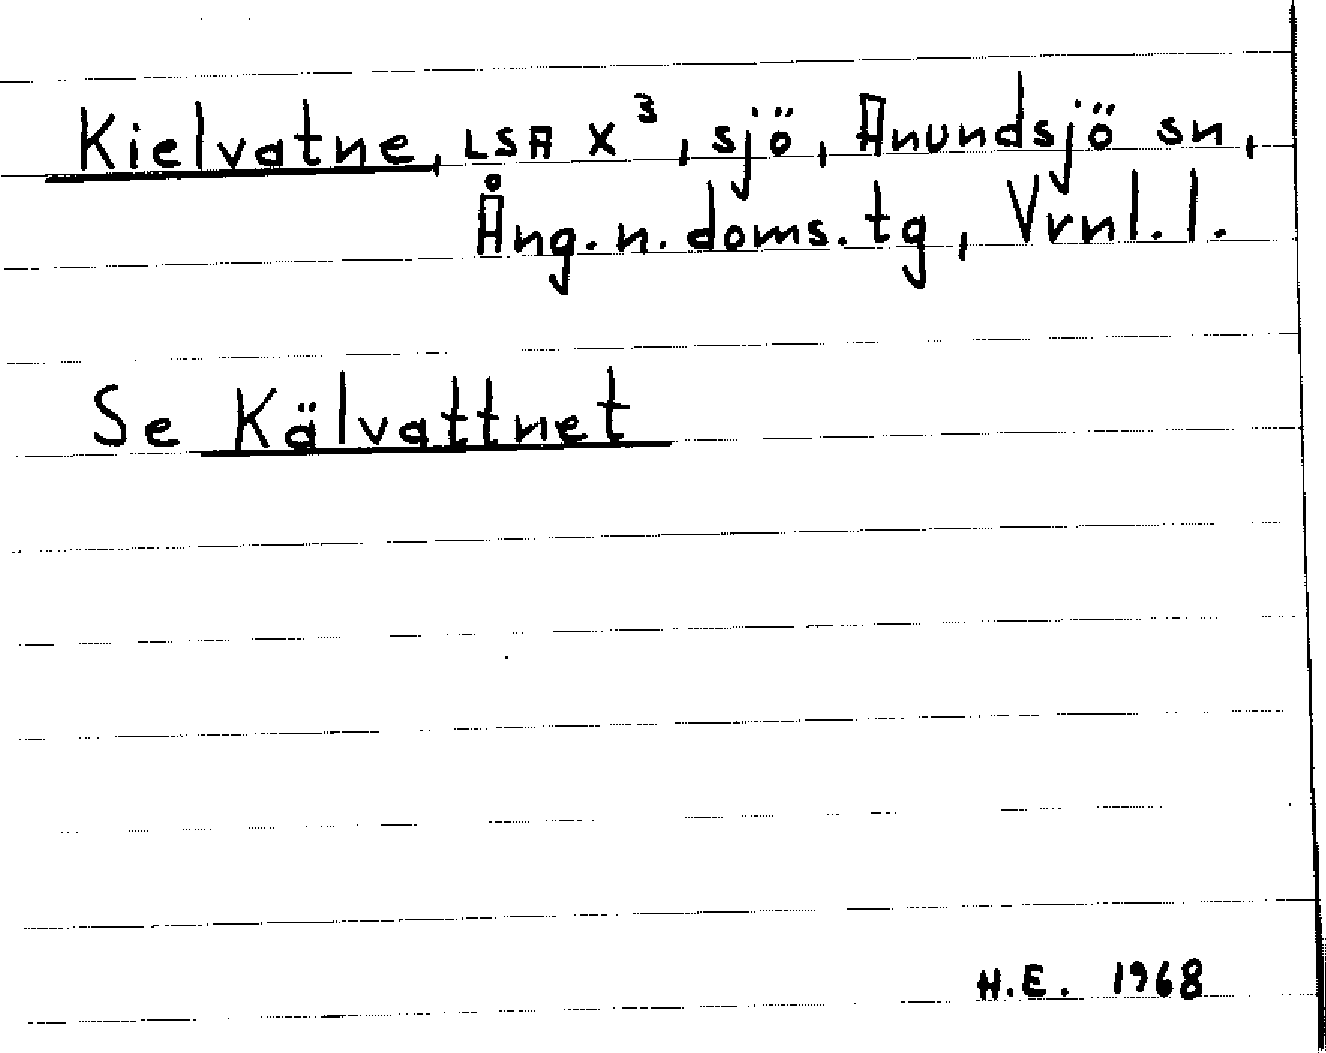 Kielvatne, LSA X³, sjö, Anundsjö sn,
Ång. n. doms. tg, Vrnl. l.
Se Kälvattnet
H.E. 1968